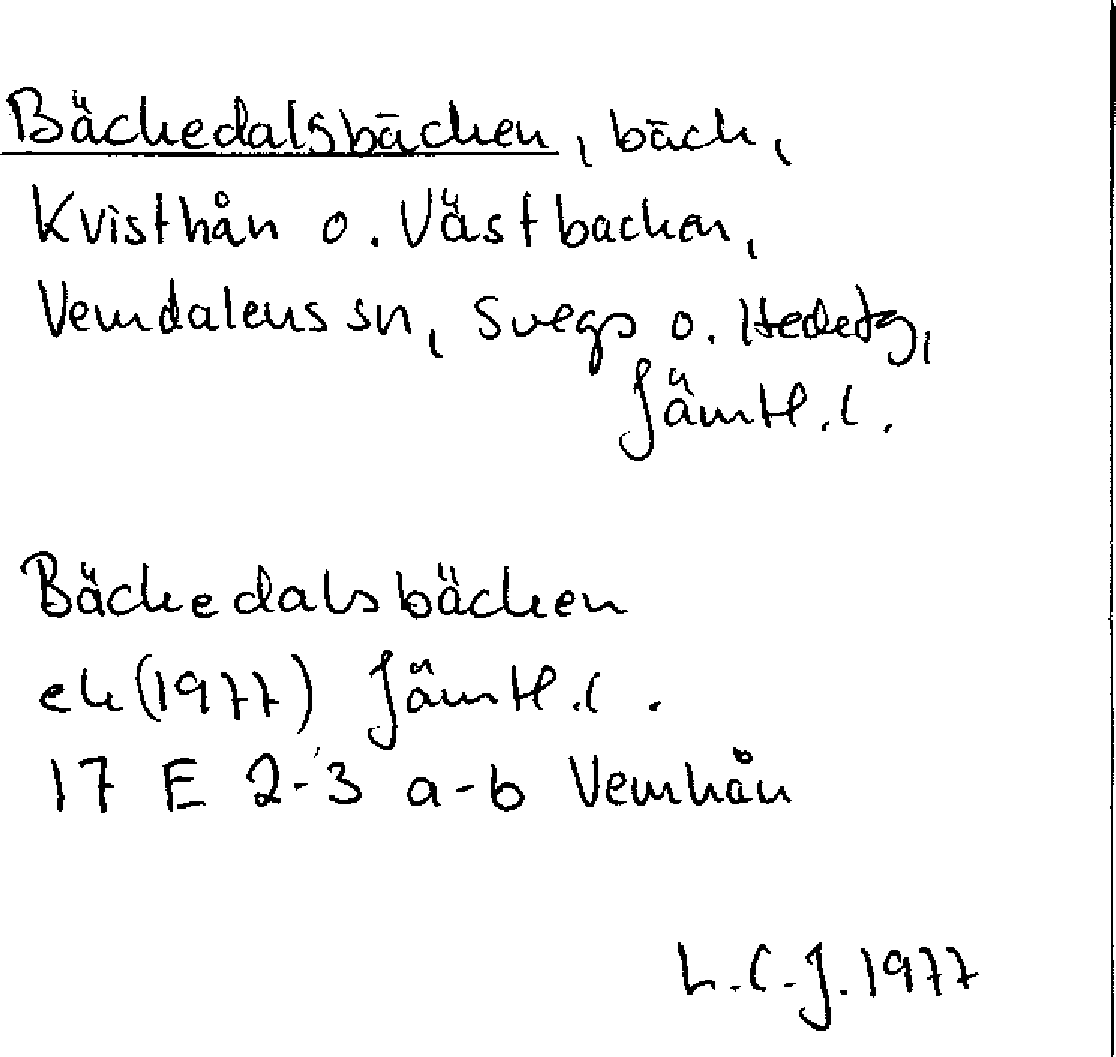 Bäckedalsbäcken, bäck,
Kvisthån o. Västbacken,
Vemdalens sn, Svegs o. Hedetg,
Jämtl. l.
Bäckedalsbäcken
ek (1977) Jämtl. l.
17 E 2-3 a-b Vemhån
L.C.J. 1977